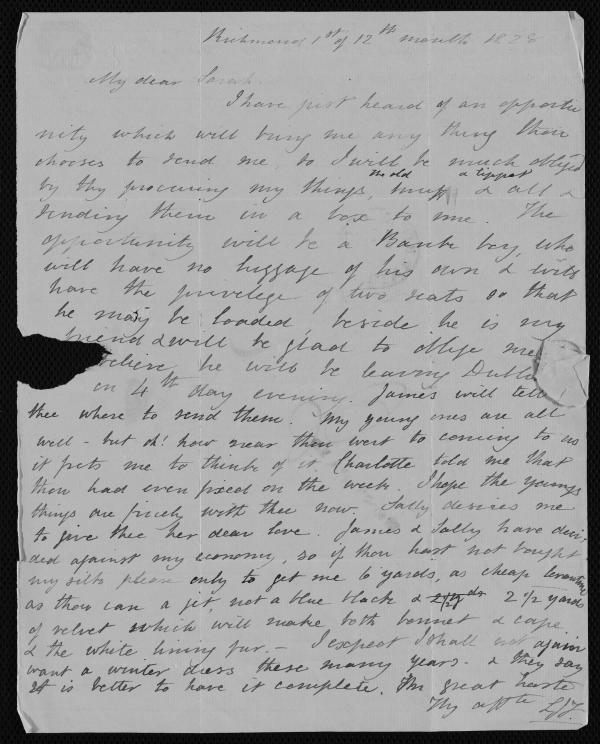 Richmond 1st of 12th month 1828
My dear Sarah
I have just heard of an opportu
nity which will bring me any thing thou
chooses to send me, so I will be much obliged
by thy procuring my things, the old muff a tippet & all &
sending them in a box to me. The
opportunity will be a Bank boy, who
will have no luggage of his own & will
have the privelege of two seats so that
he may be loaded, beside he is my
friend & will be glad to oblige me
believe he will be leaving Dublin
on 4th day evening. James will tell
thee where to send them. My young ones are all
well - but oh! how near thou wert to coming to us
it frets me to think of it. Charlotte told me that
thou had even fixed on the week. I hope the young
things are finely with thee now. Sally desires me
to give thee her dear love. James & Sally have deci-
ded against my economy, so if thou hast not bought
my silks please only to get me 6 yards, as cheap levantine
as thou can a jet, not a blue black & 2 1/2 yards
of velvet which will make both bonnet & cape
& the white lining fur. - I expect I shall not again
want a winter dress these many years - & they say
it is better to have it complete. In great haste
Thy affte